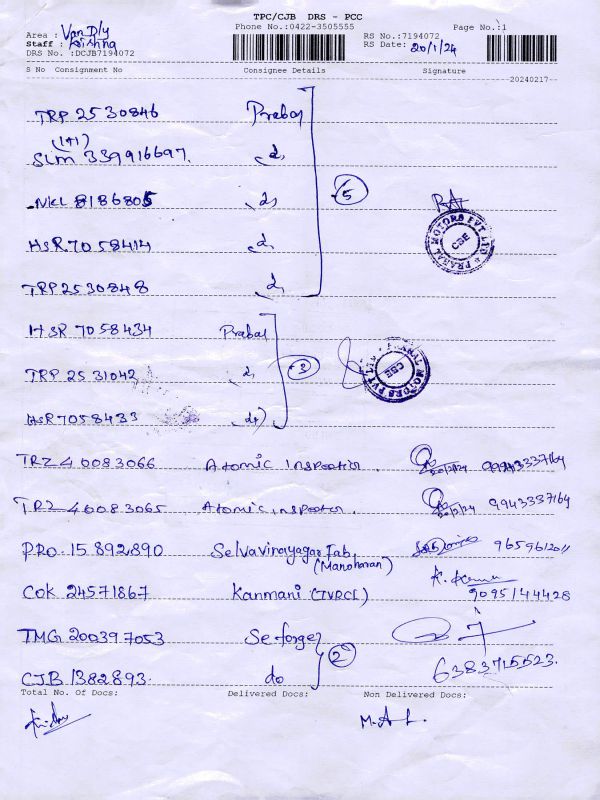 TPC/CJB DRS - PCC
Phone No.:0422-3505555 Page No.:1
Area : Van Dly
Staff : Krishna
DRS No. :DCJB7194072
RS No.:7194072
RS Date: 20/1/24
S No Consignment No Consignee Details Signature
20240217
TRP 2530846 Prabal
(1+1)
SLM 339916697 d,
NKL 8186805 d, 5
HSR 7058414 d,
TRP 2530848 d,
PRABAL MOTORS PVT LTD
CBE
HSR 7058434 Prabal
TRP 2531042 d, 3
HSR 7058433
PRABAL MOTORS PVT LTD
CBE
TRZ 40083066 Atomic Inspection.
TRZ 40083065 Atomic inspection. 9943337169
PRO 15892890 Selvavinayagar Fab,
(Manoharan)
COK 24571867 Kanmani (TVRCL) 9095144428
TMG 200397053 Seforge
CJB 1382893 do 2 6383715523.
Total No. Of Docs: Delivered Docs: Non Delivered Docs: